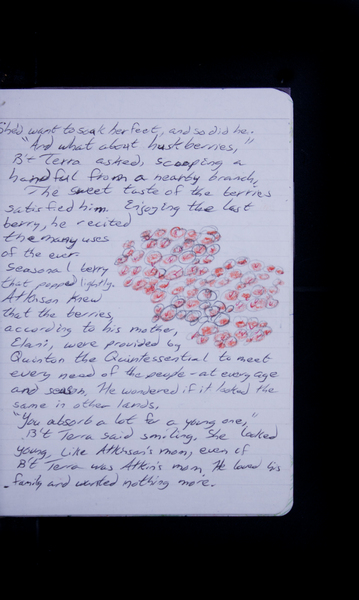 She'd want to soak her feet, and so did he.
"And what about huskberries,"
B't Terra asked, scooping a
handful from a nearby branch.
The sweet taste of the berries
satisfied him. Enjoying the last
berry, he recited
the many uses
of the ever
seasonal berry
that popped lightly.
Atkinson knew
that the berries,
according to his mother,
Elani, were provided by
Quinton the Quintessential to meet
every need of the people - at every age
and season. He wondered if it looked the
same in other lands.
"You absorb a lot for a young one,"
B't Terra said smiling. She looked
young, like Atkinson's mom, even if
B't Terra was Atkin's mom. He loved his
family and wanted nothing more.